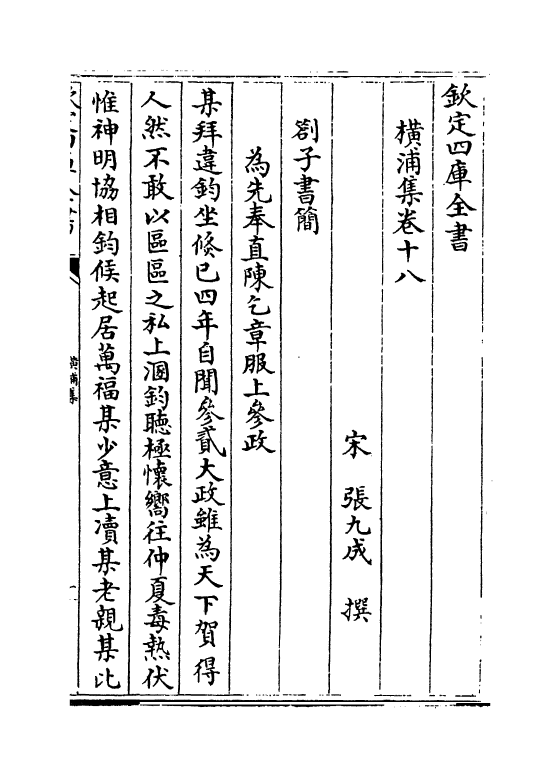 欽定四庫全書
橫浦集卷十八
宋 張九成 撰
劄子書簡
為先奉直陳乞章服上參政
某拜違鈞坐倐已四年自聞參貳大政雖為天下賀得
人然不敢以區區之私上溷鈞聽極懷嚮往仲夏毒熱伏
惟神明協相鈞候起居萬福某少意上凟某老親某比
橫浦集